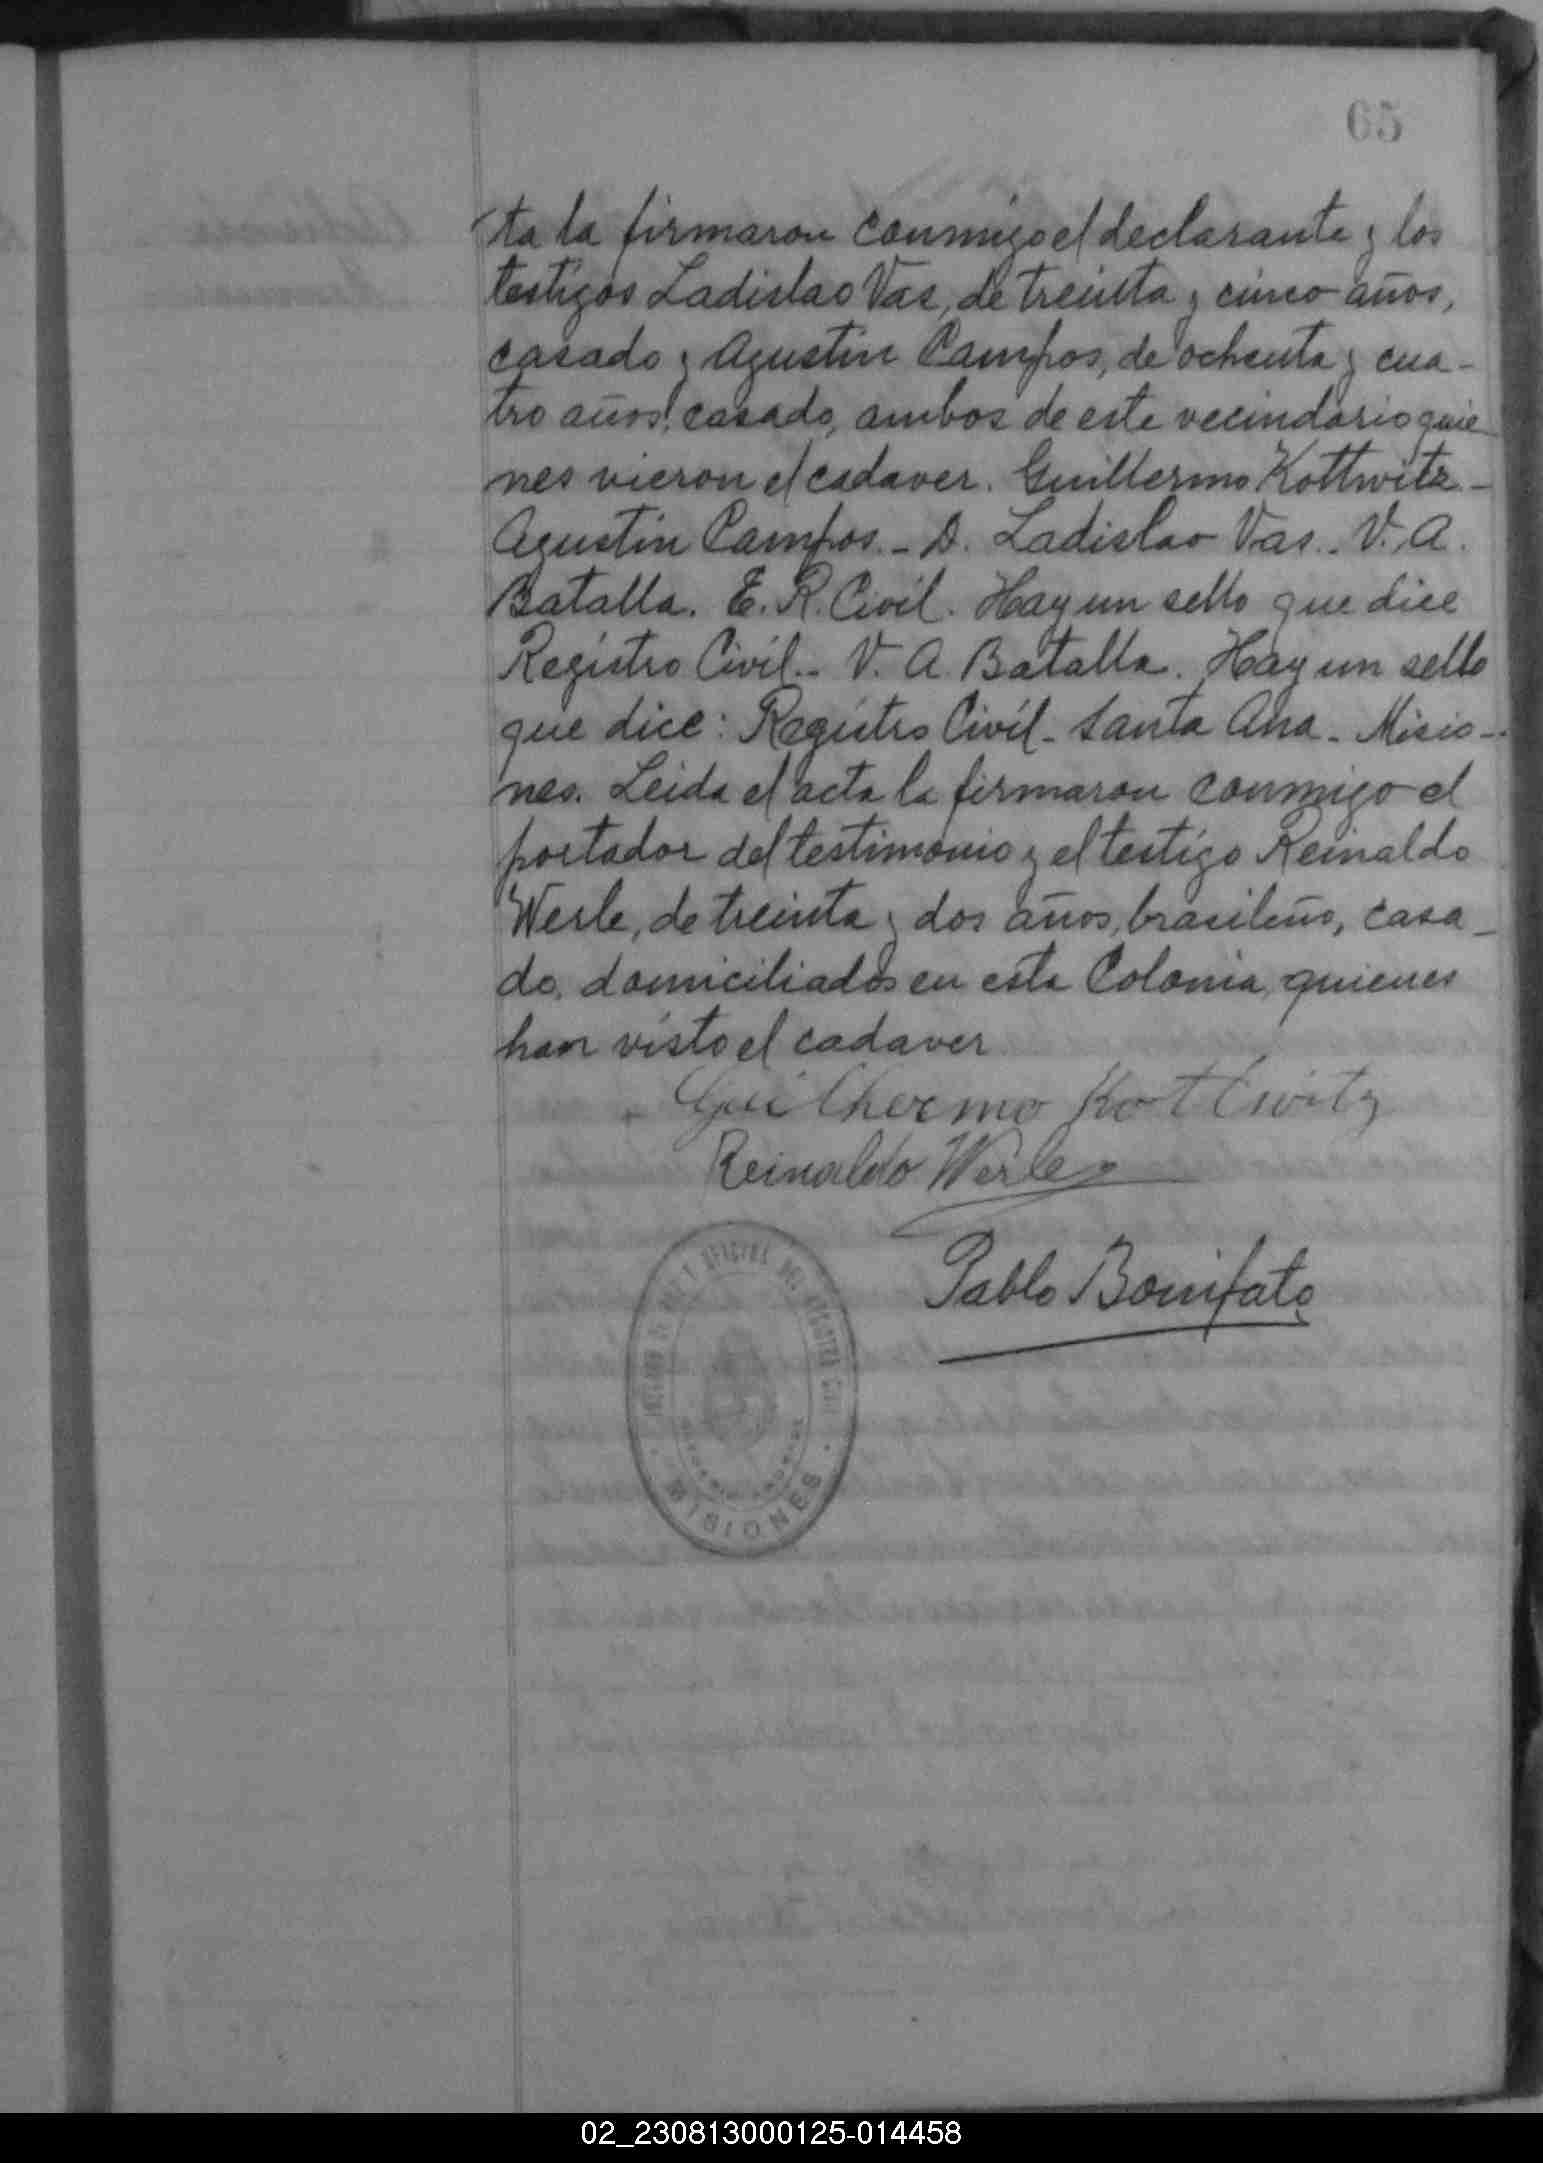 65
ta la firmaron conmigo el declarante y los
testigos Ladislao Vas, de treinta y cinco años,
casado y Agustin Campos, de ochenta y cua-
tro años, casado, ambos de este vecindario quie
nes vieron el cadaver. Guillermo Kottwitz -
Agustin Campos. - D. Ladislao Vas. - V. A.
Batalla. E. R. Civil. Hay un sello que dice
Registro Civil. - V. A. Batalla. Hay un sello
que dice: Registro Civil - Santa Ana - Misio-
nes. Leida el acta la firmaron conmigo el
portador del testimonio y el testigo Reinaldo
Werle, de treinta y dos años, brasileño, casa-
do, domiciliados en esta Colonia, quienes
han visto el cadaver
Guilhermo Kottwitz
Reinaldo Werle
Pablo Bonifato
MISIONES
02_230813000125-014458